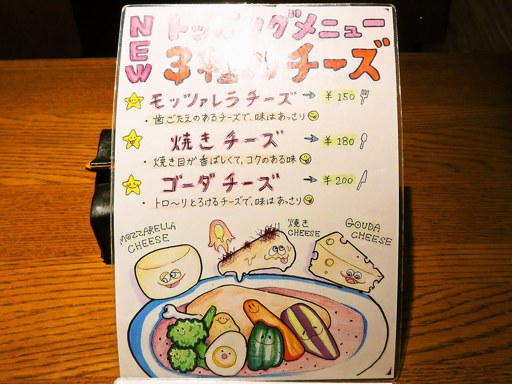 NEW
トッピングメニュー
3種のチーズ
モッツァレラチーズ → ¥150
・歯ごたえのあるチーズで、味はあっさり
焼きチーズ → ¥180
・焼き目が香ばしくて、コクのある味
ゴーダチーズ → ¥200
・トロ〜りとろけるチーズで、味はあっさり
MOZZARELLA
CHEESE
焼き
CHEESE
GOUDA
CHEESE